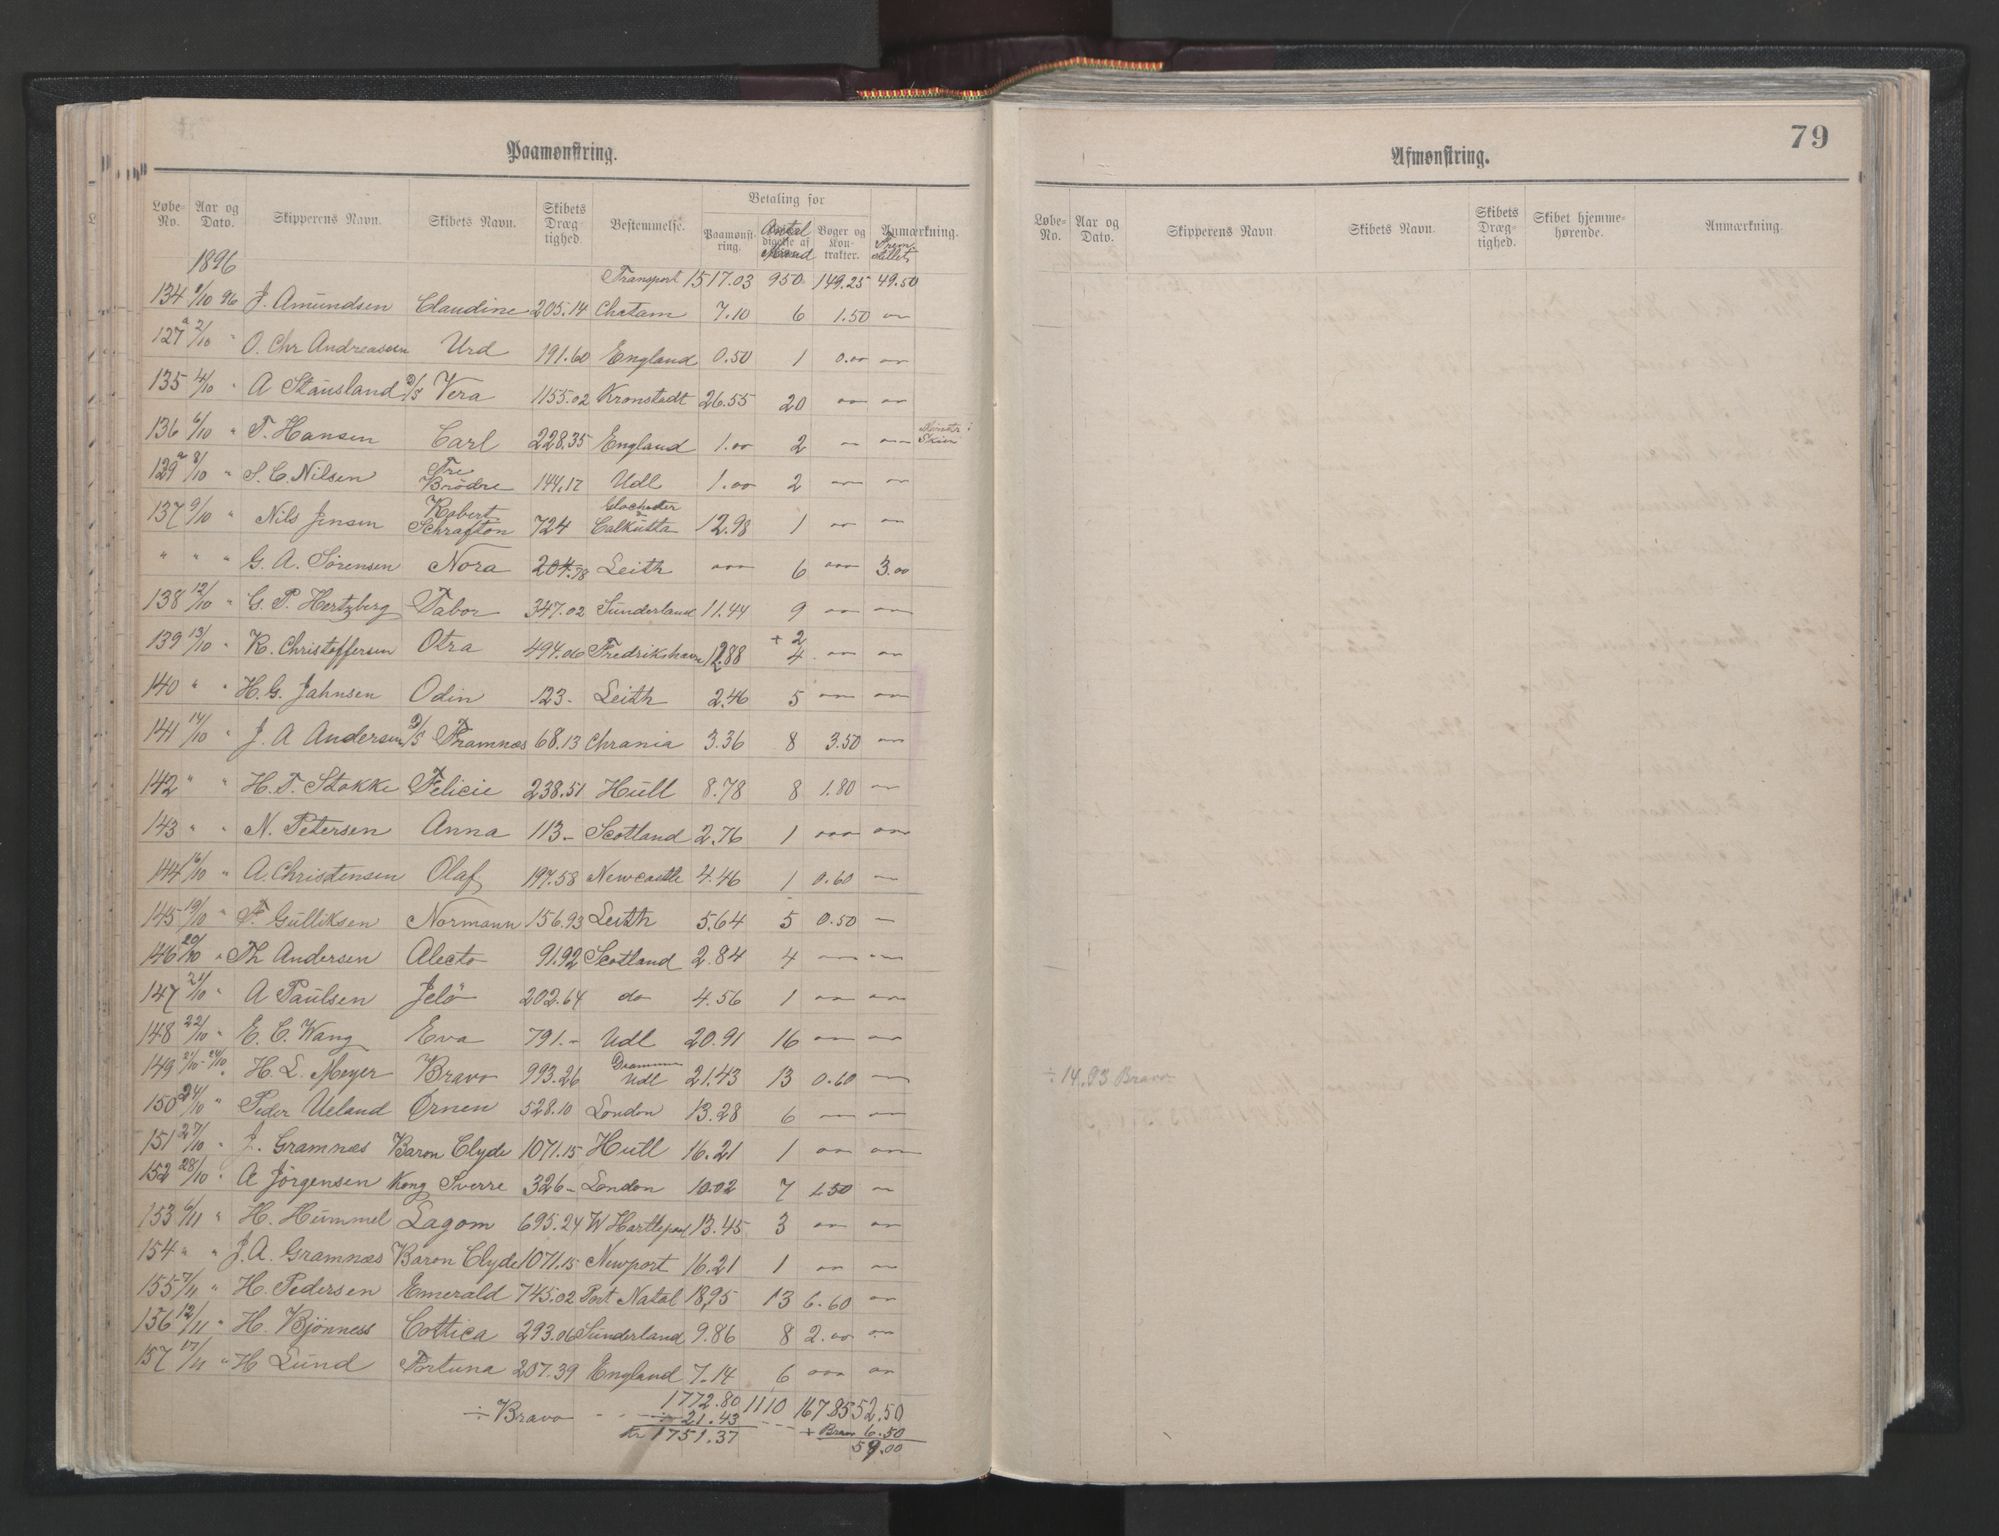 Paamønstring.
Løbe-No. Aar og Dato. Skipperens Navn. Skibets Navn. Skibets Drægtighed. Bestemmelse. Betaling for Paamønstring. Antal Mand Bøger og Kontrakter. Anmærkning. Fremstillet
1896
Transport 1517.03 950 149.25 49.50
134 1/10 96 J. Amundsen Claudine 205.14 Chatam 7.10 6 1.50 „
127a 2/10 „ O. Chr Andreassen Urd 191.60 England 0.50 1 0.00 „
135 4/10 „ A Stausland D/S Vera 1155.02 Kronstadt 26.55 20 „ „
136 6/10 „ T. Hansen Carl 228.35 England 1.00 2 „ „ Mønstr i Skien
129a 8/10 „ S. C. Nilsen Tre Brødre 144.17 Udl 1.00 2 „ „
137 9/10 „ Nils Jensen Robert Schrafton 724 Calkutta 12.98 1 „ „
„ „ „ G. A. Sørensen Nora 204.78 Leith „ 6 „ 3.00
138 12/10 „ G. P. Hertzberg Tabor 347.02 Sunderland 11.44 9 „ „
139 13/10 „ K. Christoffersen Otra 494.06 Fredrikshavn 12.88 + 2 4 „ „
140 „ „ H. G. Jahnsen Odin 123- Leith 2.46 5 „ „
141 14/10 „ J. A Andersen D/S Framnæs 68.13 Chrania 3.36 8 3.50 „
142 „ „ H. T. Stokke Felicie 238.51 Hull 8.78 8 1.80 „
143 „ „ N. Petersen Anna 113- Scotland 2.76 1 „ „
144 16/10 „ A. Christensen Olaf 197.58 Newcastle 4.46 1 0.60 „
145 19/10 „ F. Gulliksen Normann 156.93 Leith 5.64 5 0.50 „
146 20/10 „ Th Andersen Alecto 91.92 Scotland 2.84 4 „ „
147 21/10 „ A Paulsen Jelö 202.64 do 4.56 1 „ „
148 22/10 „ E. C. Wang Eva 791.- Udl 20.91 16 „ „
149 21/10-24/10 „ H. L. Meyer Bravo 993.26 Drammen Udl 21.43 13 0.60 „
150 24/10 „ Peder Ueland Ørnen 528.10 London 13.28 6 „ „
151 27/10 „ J. Gramnæs Baron Clyde 1071.15 Hull 16.21 1 „ „
152 28/10 „ A Jörgensen Kong Sverre 326- London 10.02 7 1.50 „
153 6/11 „ H. Hummel Lagom 695.24 W Hartlepool 13.45 3 „ „
154 „ „ J. A. Gramnæs Baron Clyde 1071.15 Newport 16.21 1 „ „
155 7/11 „ H. Pedersen Emerald 745.02 Port Natal 18.95 13 6.60 „
156 12/11 „ H. Bjönness Cottica 293.06 Sunderland 9.86 8 2.00 „
157 17/11 „ H Lund Fortuna 207.39 England 7.14 6 „ „
1772.80 1110 167.85 52.50
÷ Bravo - - ÷ 21.43 - - - + Bravo 6.50
Kr 1751.37 59.00
79
Afmønstring.
Løbe-No. Aar og Dato. Skipperens Navn. Skibets Navn. Skibets Drægtighed. Skibet hjemmehørende. Anmærkning.
÷ 14.93 Bravo